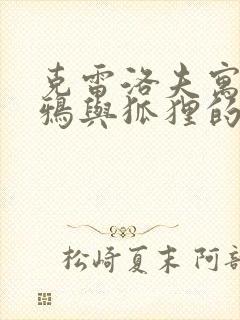 克雷洛夫寓
鴉與狐狸的
松崎夏末 阿部